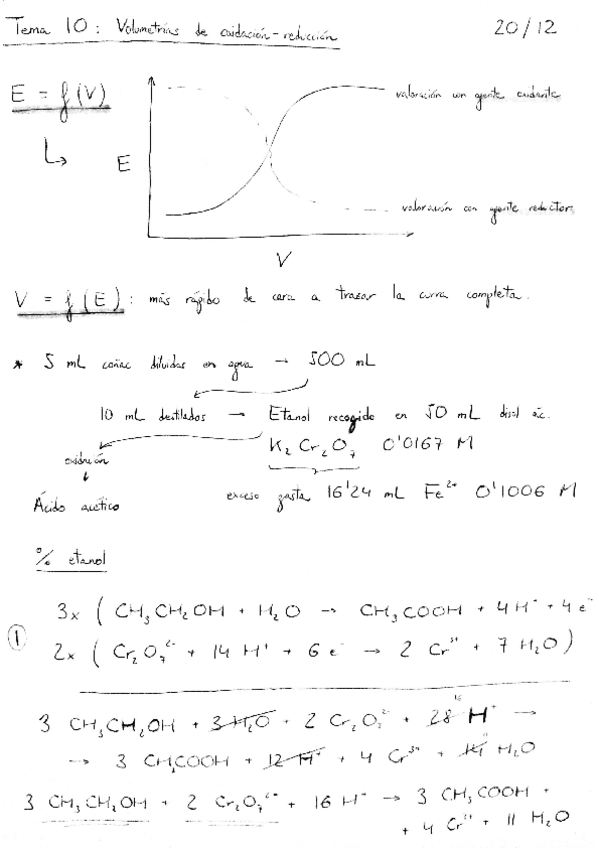 Tema 10: Volumetrías de oxidación-reducción 20/12
E = f(V)
valoración con agente oxidante
E
valoración con agente reductor
V
V = f(E): más rápido de cara a trazar la curva completa.
* 5 mL coñac diluidas en agua → 500 mL
10 mL destilados → Etanol recogido en 50 mL disol ác.
K₂Cr₂O₇ 0'0167 M
oxidación
exceso gasta 16'24 mL Fe²⁺ 0'1006 M
Ácido acético
% etanol
3x ( CH₃CH₂OH + H₂O → CH₃COOH + 4H⁺ + 4e⁻
①
2x ( Cr₂O₇²⁻ + 14 H⁺ + 6 e⁻ → 2 Cr³⁺ + 7 H₂O )
16
3 CH₃CH₂OH + 3 H₂O + 2 Cr₂O₇²⁻ + 28 H⁺ →
→ 3 CH₃COOH + 12 H⁺ + 4 Cr³⁺ + 14 H₂O
3 CH₃CH₂OH + 2 Cr₂O₇²⁻ + 16 H⁺ → 3 CH₃COOH +
+ 4 Cr³⁺ + 11 H₂O